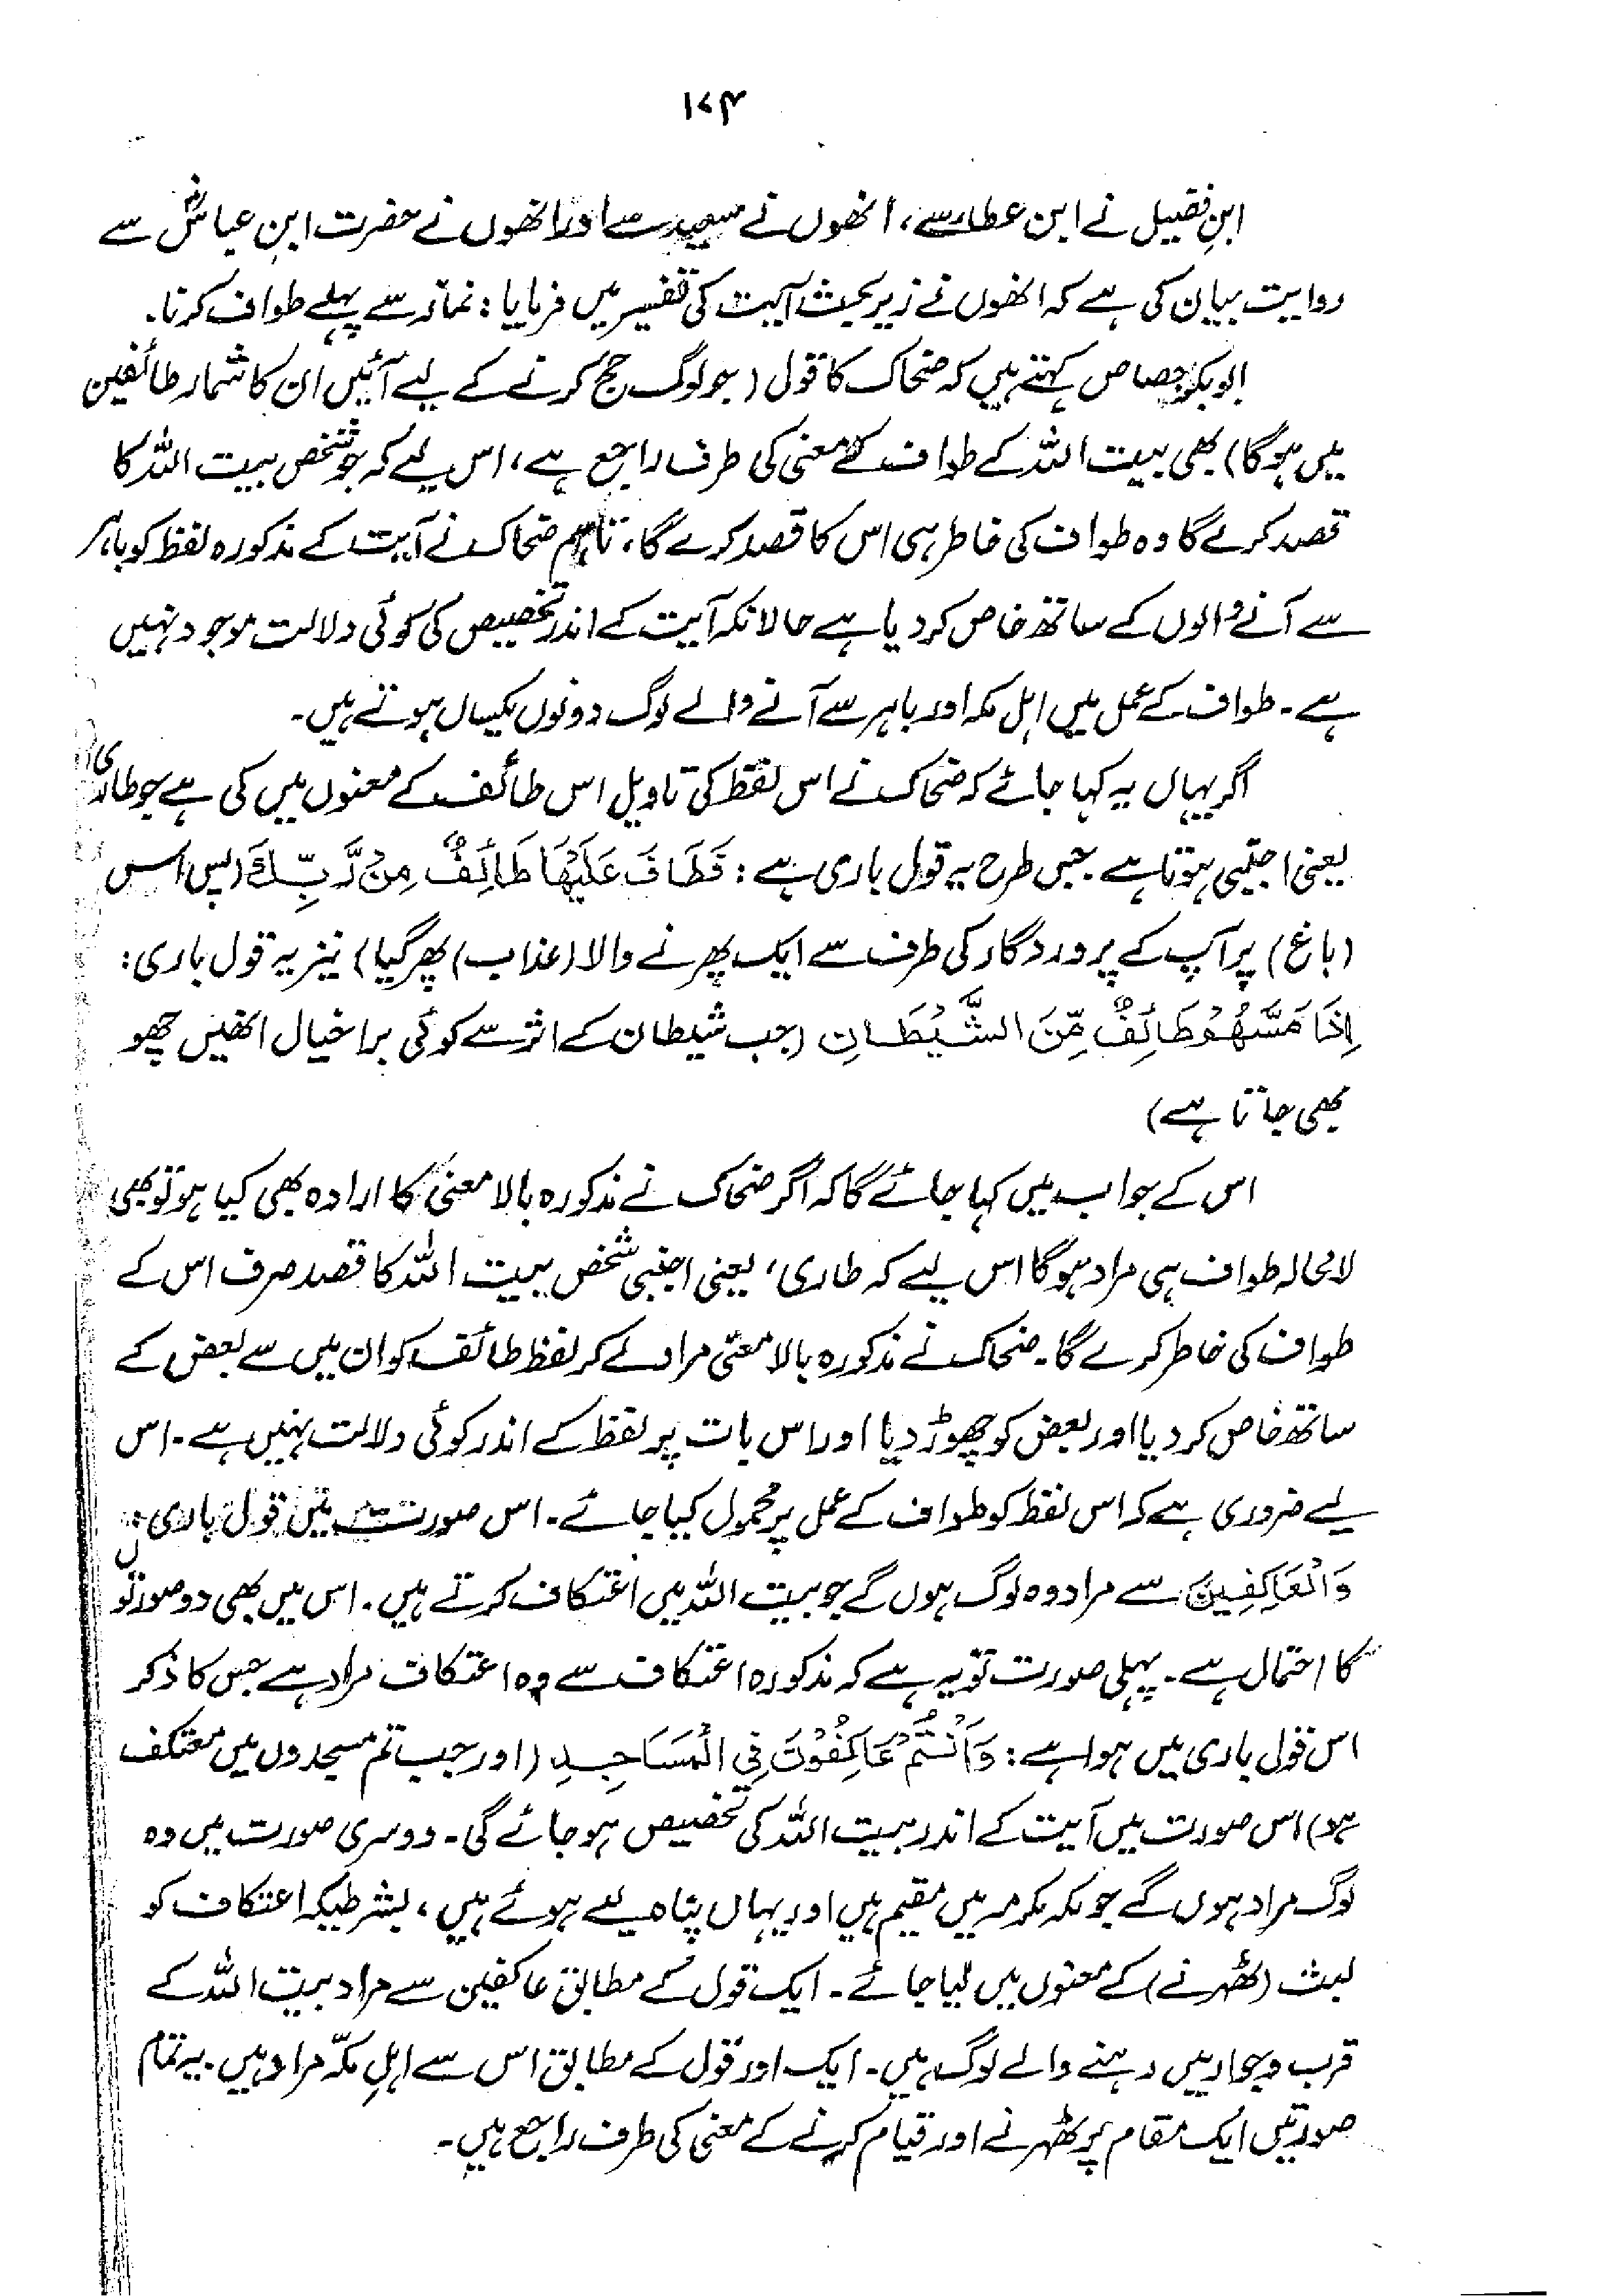 ۱۷۴
ابنِ فضیل نے ابن عطاء سے، انھوں نے سعید سے اور انھوں نے حضرت ابنِ عباسؓ سے
روایت بیان کی ہے کہ انھوں نے زیر بحث آیت کی تفسیر میں فرمایا: نماز سے پہلے طواف کرنا۔
ابو بکر جصاص کہتے ہیں کہ ضحاک کا قول (جو لوگ حج کرنے کے لیے آئیں ان کا شمار طائفین
میں ہوگا) بھی بیت اللہ کے طواف کے معنی کی طرف راجع ہے، اس لیے کہ جو شخص بیت اللہ کا
قصد کرے گا وہ طواف کی خاطر ہی اس کا قصد کرے گا، تاہم ضحاک نے آیت کے مذکورہ لفظ کو باہر
سے آنے والوں کے ساتھ خاص کر دیا ہے حالانکہ آیت کے اندر تخصیص کی کوئی دلالت موجود نہیں
ہے۔ طواف کے عمل میں اہل مکہ اور باہر سے آنے والے لوگ دونوں یکساں ہوتے ہیں۔
اگر یہاں یہ کہا جائے کہ ضحاک نے اس لفظ کی تاویل اس طائف کے معنوں میں کی ہے جو طاری
یعنی اجنبی ہوتا ہے جس طرح یہ قول باری ہے: فَطَافَ عَلَيْهَا طَائِفٌ مِنْ رَّبِّكَ (پس اس
(باغ) پر آپ کے پروردگار کی طرف سے ایک پھرنے والا (عذاب) پھر گیا) نیز یہ قول باری:
اِذَا مَسَّهُمْ طَائِفٌ مِّنَ الشَّيْطَانِ (جب شیطان کے اثر سے کوئی برا خیال انھیں چھو
بھی جاتا ہے)
اس کے جواب میں کہا جائے گا کہ اگر ضحاک نے مذکورہ بالا معنیٰ کا ارادہ بھی کیا ہو تو بھی
لا محالہ طواف ہی مراد ہوگا اس لیے کہ طاری، یعنی اجنبی شخص بیت اللہ کا قصد صرف اس کے
طواف کی خاطر کرے گا۔ ضحاک نے مذکورہ بالا معنی مراد لے کر لفظ طائف کو ان میں سے بعض کے
ساتھ خاص کر دیا اور بعض کو چھوڑ دیا اور اس بات پر لفظ کے اندر کوئی دلالت نہیں ہے۔ اس
لیے ضروری ہے کہ اس لفظ کو طواف کے عمل پر محمول کیا جائے۔ اس صورت میں قول باری:
وَالْعَاكِفِينَ سے مراد وہ لوگ ہوں گے جو بیت اللہ میں اعتکاف کرتے ہیں۔ اس میں بھی دو صورتوں
کا احتمال ہے۔ پہلی صورت تو یہ ہے کہ مذکورہ اعتکاف سے وہ اعتکاف مراد ہے جس کا ذکر
اس قول باری میں ہوا ہے: وَاَنْتُمْ عَاكِفُوْنَ فِي الْمَسَاجِدِ (اور جب تم مسجدوں میں معتکف
ہو) اس صورت میں آیت کے اندر بیت اللہ کی تخصیص ہو جائے گی۔ دوسری صورت میں وہ
لوگ مراد ہوں گے جو مکہ مکرمہ میں مقیم ہیں اور یہاں پناہ لیے ہوئے ہیں، بشرطیکہ اعتکاف کو
لبث (ٹھہرنے) کے معنوں میں لیا جائے۔ ایک قول کے مطابق عاکفین سے مراد بیت اللہ کے
قرب و جوار میں رہنے والے لوگ ہیں۔ ایک اور قول کے مطابق اس سے اہلِ مکّہ مراد ہیں۔ یہ تمام
صورتیں ایک مقام پر ٹھہرنے اور قیام کرنے کے معنی کی طرف راجع ہیں۔